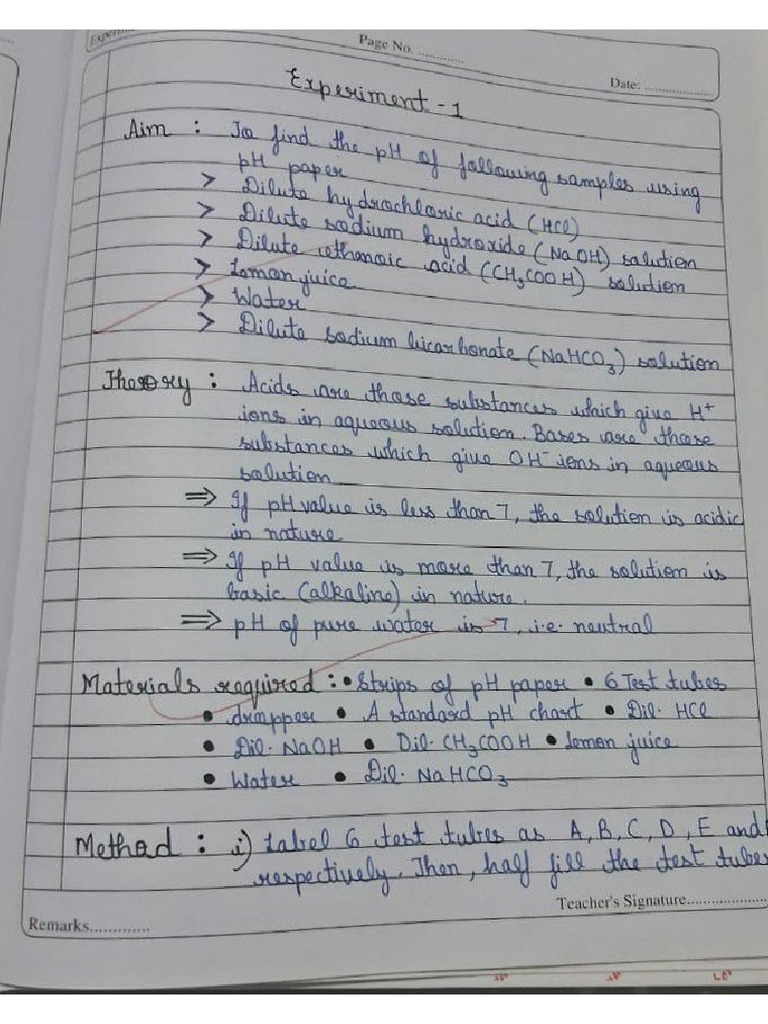 Page No. ............
Date: ..................
Experiment - 1
Aim : To find the pH of following samples using
pH paper
> Dilute hydrochloric acid (HCl)
> Dilute sodium hydroxide (NaOH) solution
> Dilute ethanoic acid (CH₃COOH) solution
> Lemon juice
> Water
> Dilute sodium bicarbonate (NaHCO₃) solution
Theory : Acids are those substances which give H⁺
ions in aqueous solution. Bases are those
substances which give OH⁻ ions in aqueous
solution
⇒ If pH value is less than 7, the solution is acidic
in nature
⇒ If pH value is more than 7, the solution is
basic (alkaline) in nature.
⇒ pH of pure water is 7, i.e. neutral
Materials required : • Strips of pH paper • 6 Test tubes
• dropper • A standard pH chart • Dil. HCl
• Dil. NaOH • Dil. CH₃COOH • Lemon juice
• Water • Dil. NaHCO₃
Method : i) Label 6 test tubes as A, B, C, D, E and
respectively. Then, half fill the test tubes
Teacher's Signature....................
Remarks.............